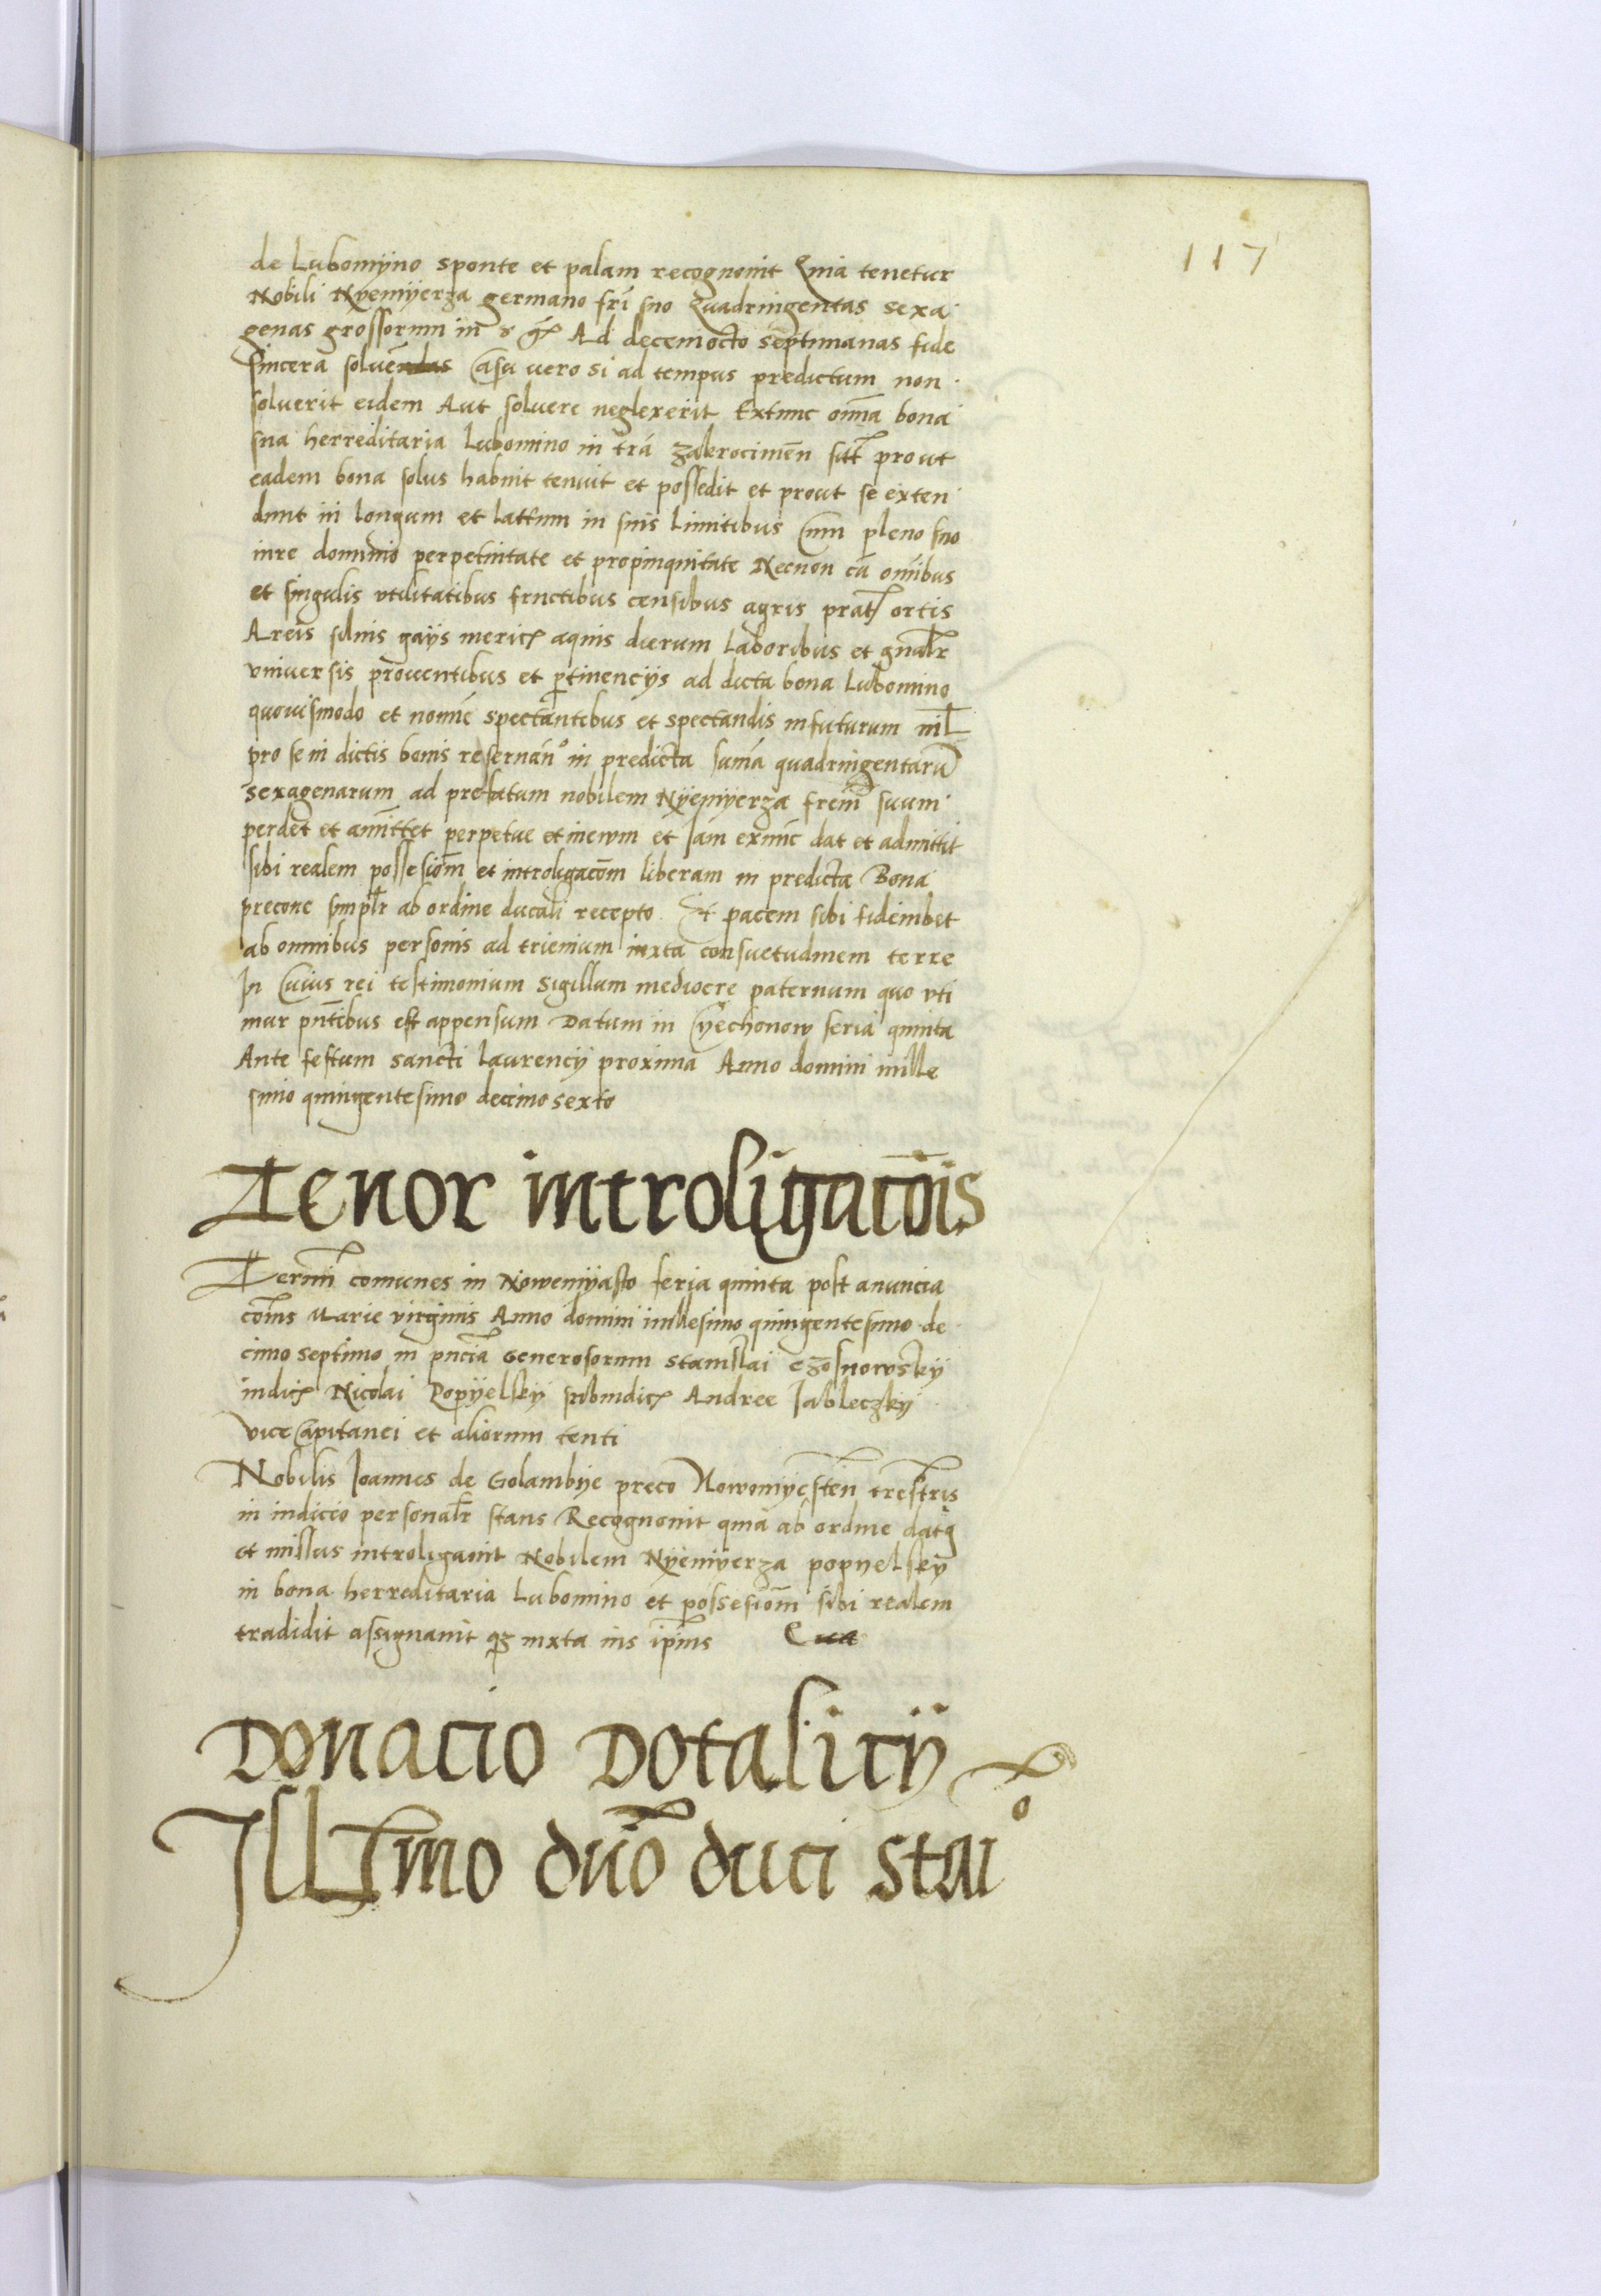 117
de Lubomyno sponte et palam recognouit Quia tenetur
Nobili Nyemyerza germano fri suo Quadringentas sexa
genas grossorum in Ad decemocto septimanas fide
sincera soluen Casu uero si ad tempus predictum non
soluerit eidem Aut soluere neglexerit Extunc omia bona
sua herreditaria Lubomino in tra zakrocimen sitt prout
eadem bona solus habuit tenuit et possedit et prout se exten
dunt in longum et lattum in suis limitibus Cum pleno suo
iure dominio perpetuitate et propinquitate Necnon cu omibus
et singulis vtilitatibus fructibus censibus agris prat ortis
Areis siluis gays meric aquis duerum laboribus et gnalr
vniuersis prouentibus et ptinencijs ad dicta bona Lubomino
quouismodo et nomie spectantibus et spectandis infuturum nil
pro se in dictis bonis reseruano in predicta suma quadringentaru
sexagenarum ad prefatum nobilem Nyemyerza frem suum
perdet et amittet perpetue et in ewm et Iam exnuc dat et admittit
sibi realem possesiom et introligacom liberam in predicta Bona
precone simplr ab ordine ducali recepto Et pacem sibi fideiubet
ab omnibus personis ad trienium iuxta consuetudinem terre
In Cuius rei testimonium Sigillum mediocre paternum quo vti
mur pntibus est appensum Datum in Cyechonow feria quinta
Ante festum sancti Laurencij proxima Anno domini mille
simo quingentesimo decimo sexto
Tenor introligacois
Termi comunes in Nowemyasto feria quinta post anuncia
cois Marie virginis Anno domini millesimo quingentesimo de
cimo septimo in pncia Generosorum Stanislai Czosnowsky
iudic Nicolai Popyelsky subiudic Andree Iableczky
vice Capitanei et aliorum tenti
Nobilis Ioannes de Golambye preco Nowomyesten trestris
in iudicio personalr stans Recognouit quia ab ordine datq
et missus introligauit Nobilem Nyemyerza popyelsky
in bona herreditaria Lubomino et possesiom sibi realem
tradidit assignauit qz iuxta ius ipius
Donacio Dotalicij
Illmo dno duci stai